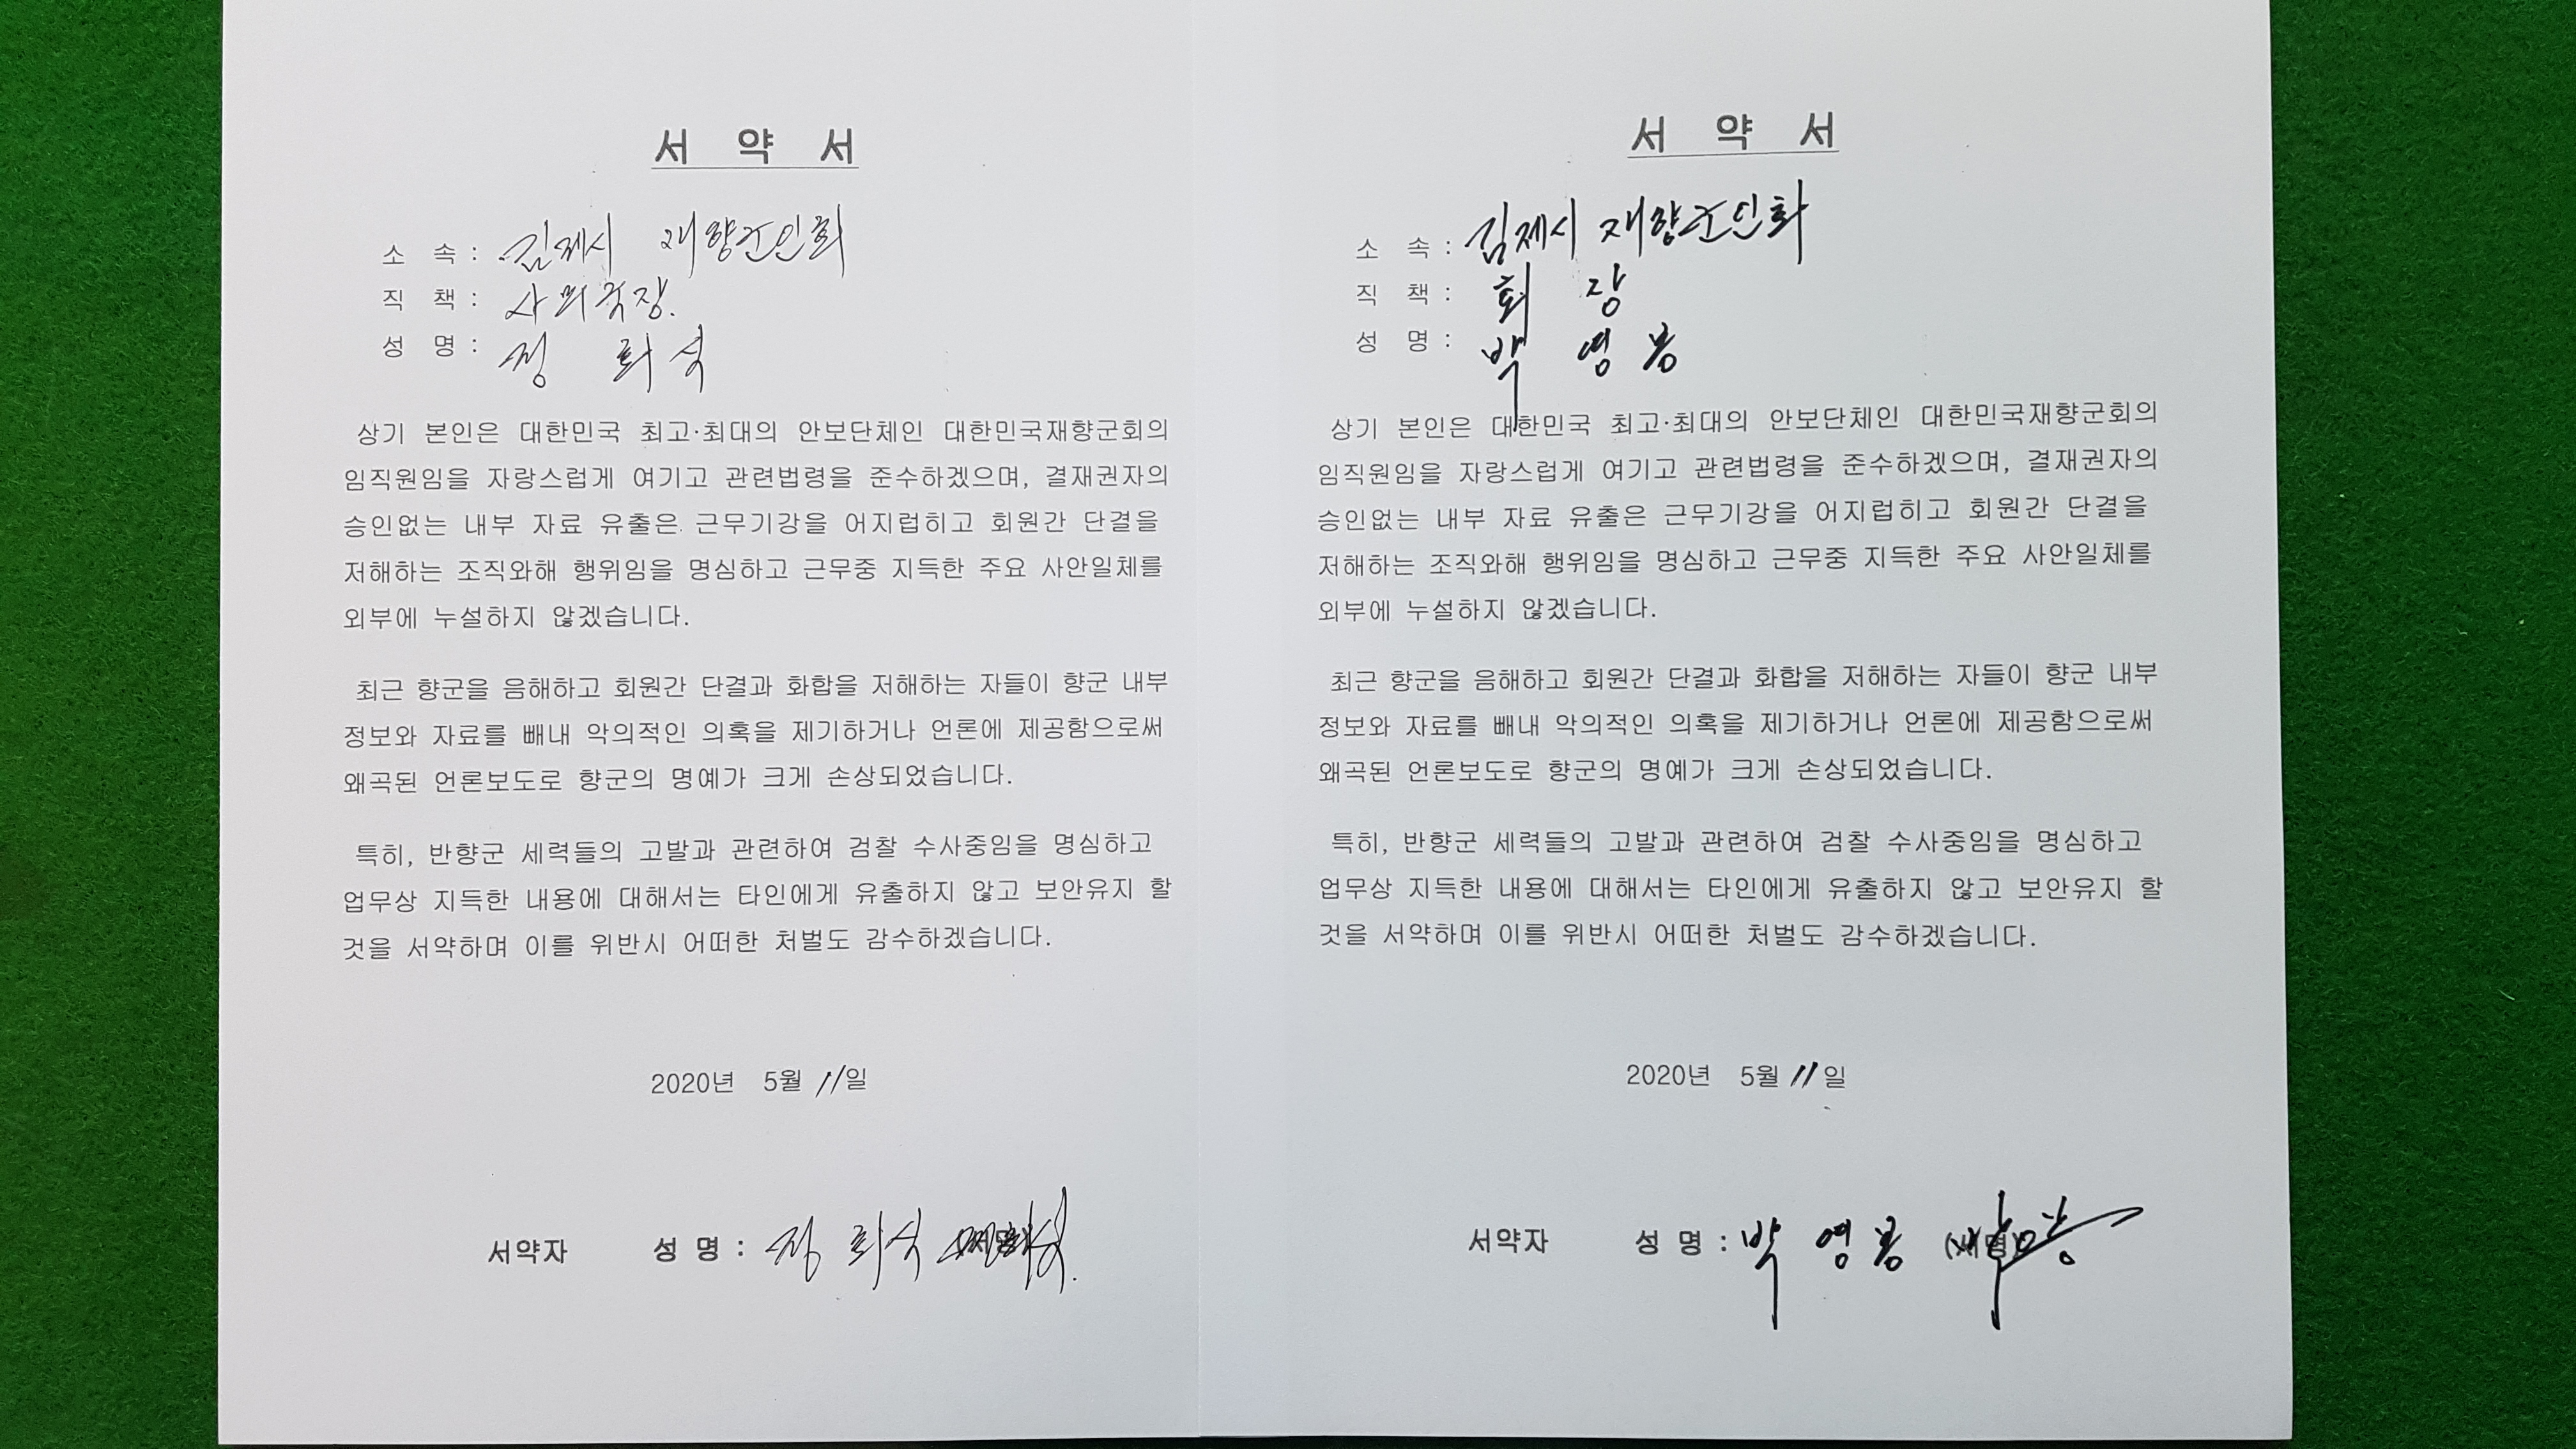 서 약 서
소 속 : 김제시 재향군인회
직 책 : 사무국장.
성 명 : 정 회석
상기 본인은 대한민국 최고·최대의 안보단체인 대한민국재향군회의
임직원임을 자랑스럽게 여기고 관련법령을 준수하겠으며, 결재권자의
승인없는 내부 자료 유출은 근무기강을 어지럽히고 회원간 단결을
저해하는 조직와해 행위임을 명심하고 근무중 지득한 주요 사안일체를
외부에 누설하지 않겠습니다.
최근 향군을 음해하고 회원간 단결과 화합을 저해하는 자들이 향군 내부
정보와 자료를 빼내 악의적인 의혹을 제기하거나 언론에 제공함으로써
왜곡된 언론보도로 향군의 명예가 크게 손상되었습니다.
특히, 반향군 세력들의 고발과 관련하여 검찰 수사중임을 명심하고
업무상 지득한 내용에 대해서는 타인에게 유출하지 않고 보안유지 할
것을 서약하며 이를 위반시 어떠한 처벌도 감수하겠습니다.
2020년 5월 11일
서약자 성 명 : 정 회석
서 약 서
소 속 : 김제시 재향군인회
직 책 : 회 장
성 명 : 박 영 봉
상기 본인은 대한민국 최고·최대의 안보단체인 대한민국재향군회의
임직원임을 자랑스럽게 여기고 관련법령을 준수하겠으며, 결재권자의
승인없는 내부 자료 유출은 근무기강을 어지럽히고 회원간 단결을
저해하는 조직와해 행위임을 명심하고 근무중 지득한 주요 사안일체를
외부에 누설하지 않겠습니다.
최근 향군을 음해하고 회원간 단결과 화합을 저해하는 자들이 향군 내부
정보와 자료를 빼내 악의적인 의혹을 제기하거나 언론에 제공함으로써
왜곡된 언론보도로 향군의 명예가 크게 손상되었습니다.
특히, 반향군 세력들의 고발과 관련하여 검찰 수사중임을 명심하고
업무상 지득한 내용에 대해서는 타인에게 유출하지 않고 보안유지 할
것을 서약하며 이를 위반시 어떠한 처벌도 감수하겠습니다.
2020년 5월 11일
서약자 성 명 : 박 영 봉